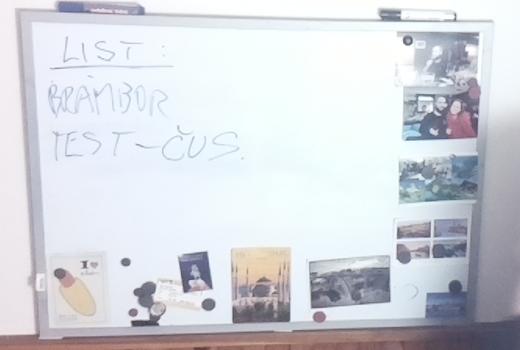 LIST:
BRAMBOR
TEST-ČUS.
I